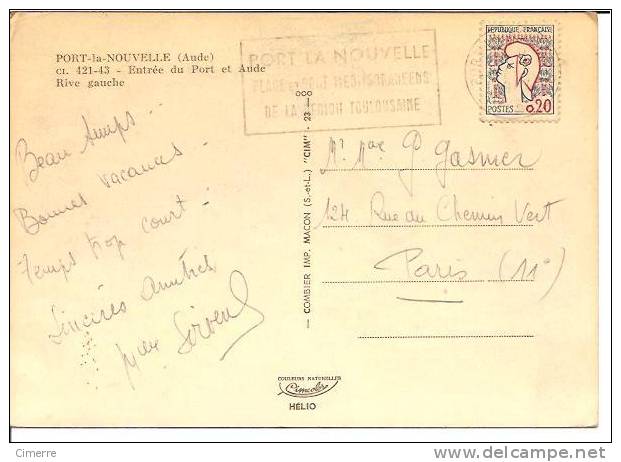 PORT-la-NOUVELLE (Aude)
CI. 421-43 - Entrée du Port et Aude
Rive gauche
PORT LA NOUVELLE
PLAGE et PORT MEDITERRANEENS
DE LA REGION TOULOUSAINE
REPUBLIQUE FRANÇAISE
POSTES 0,20
Beau temps -
Bonnes vacances -
temps trop court -
Sincères amitiés
COMBIER IMP. MACON (S.-et-L.) "CIM" - 23
Mr Mme P. Gasnier
124 Rue du Chemin Vert
Paris (11°)
COULEURS NATURELLES
Cimcolor
HÉLIO
Cimerre
www.delcampe.net